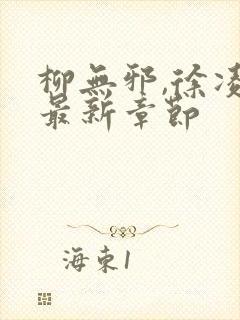 柳無邪,徐凌
最新章節
海東1